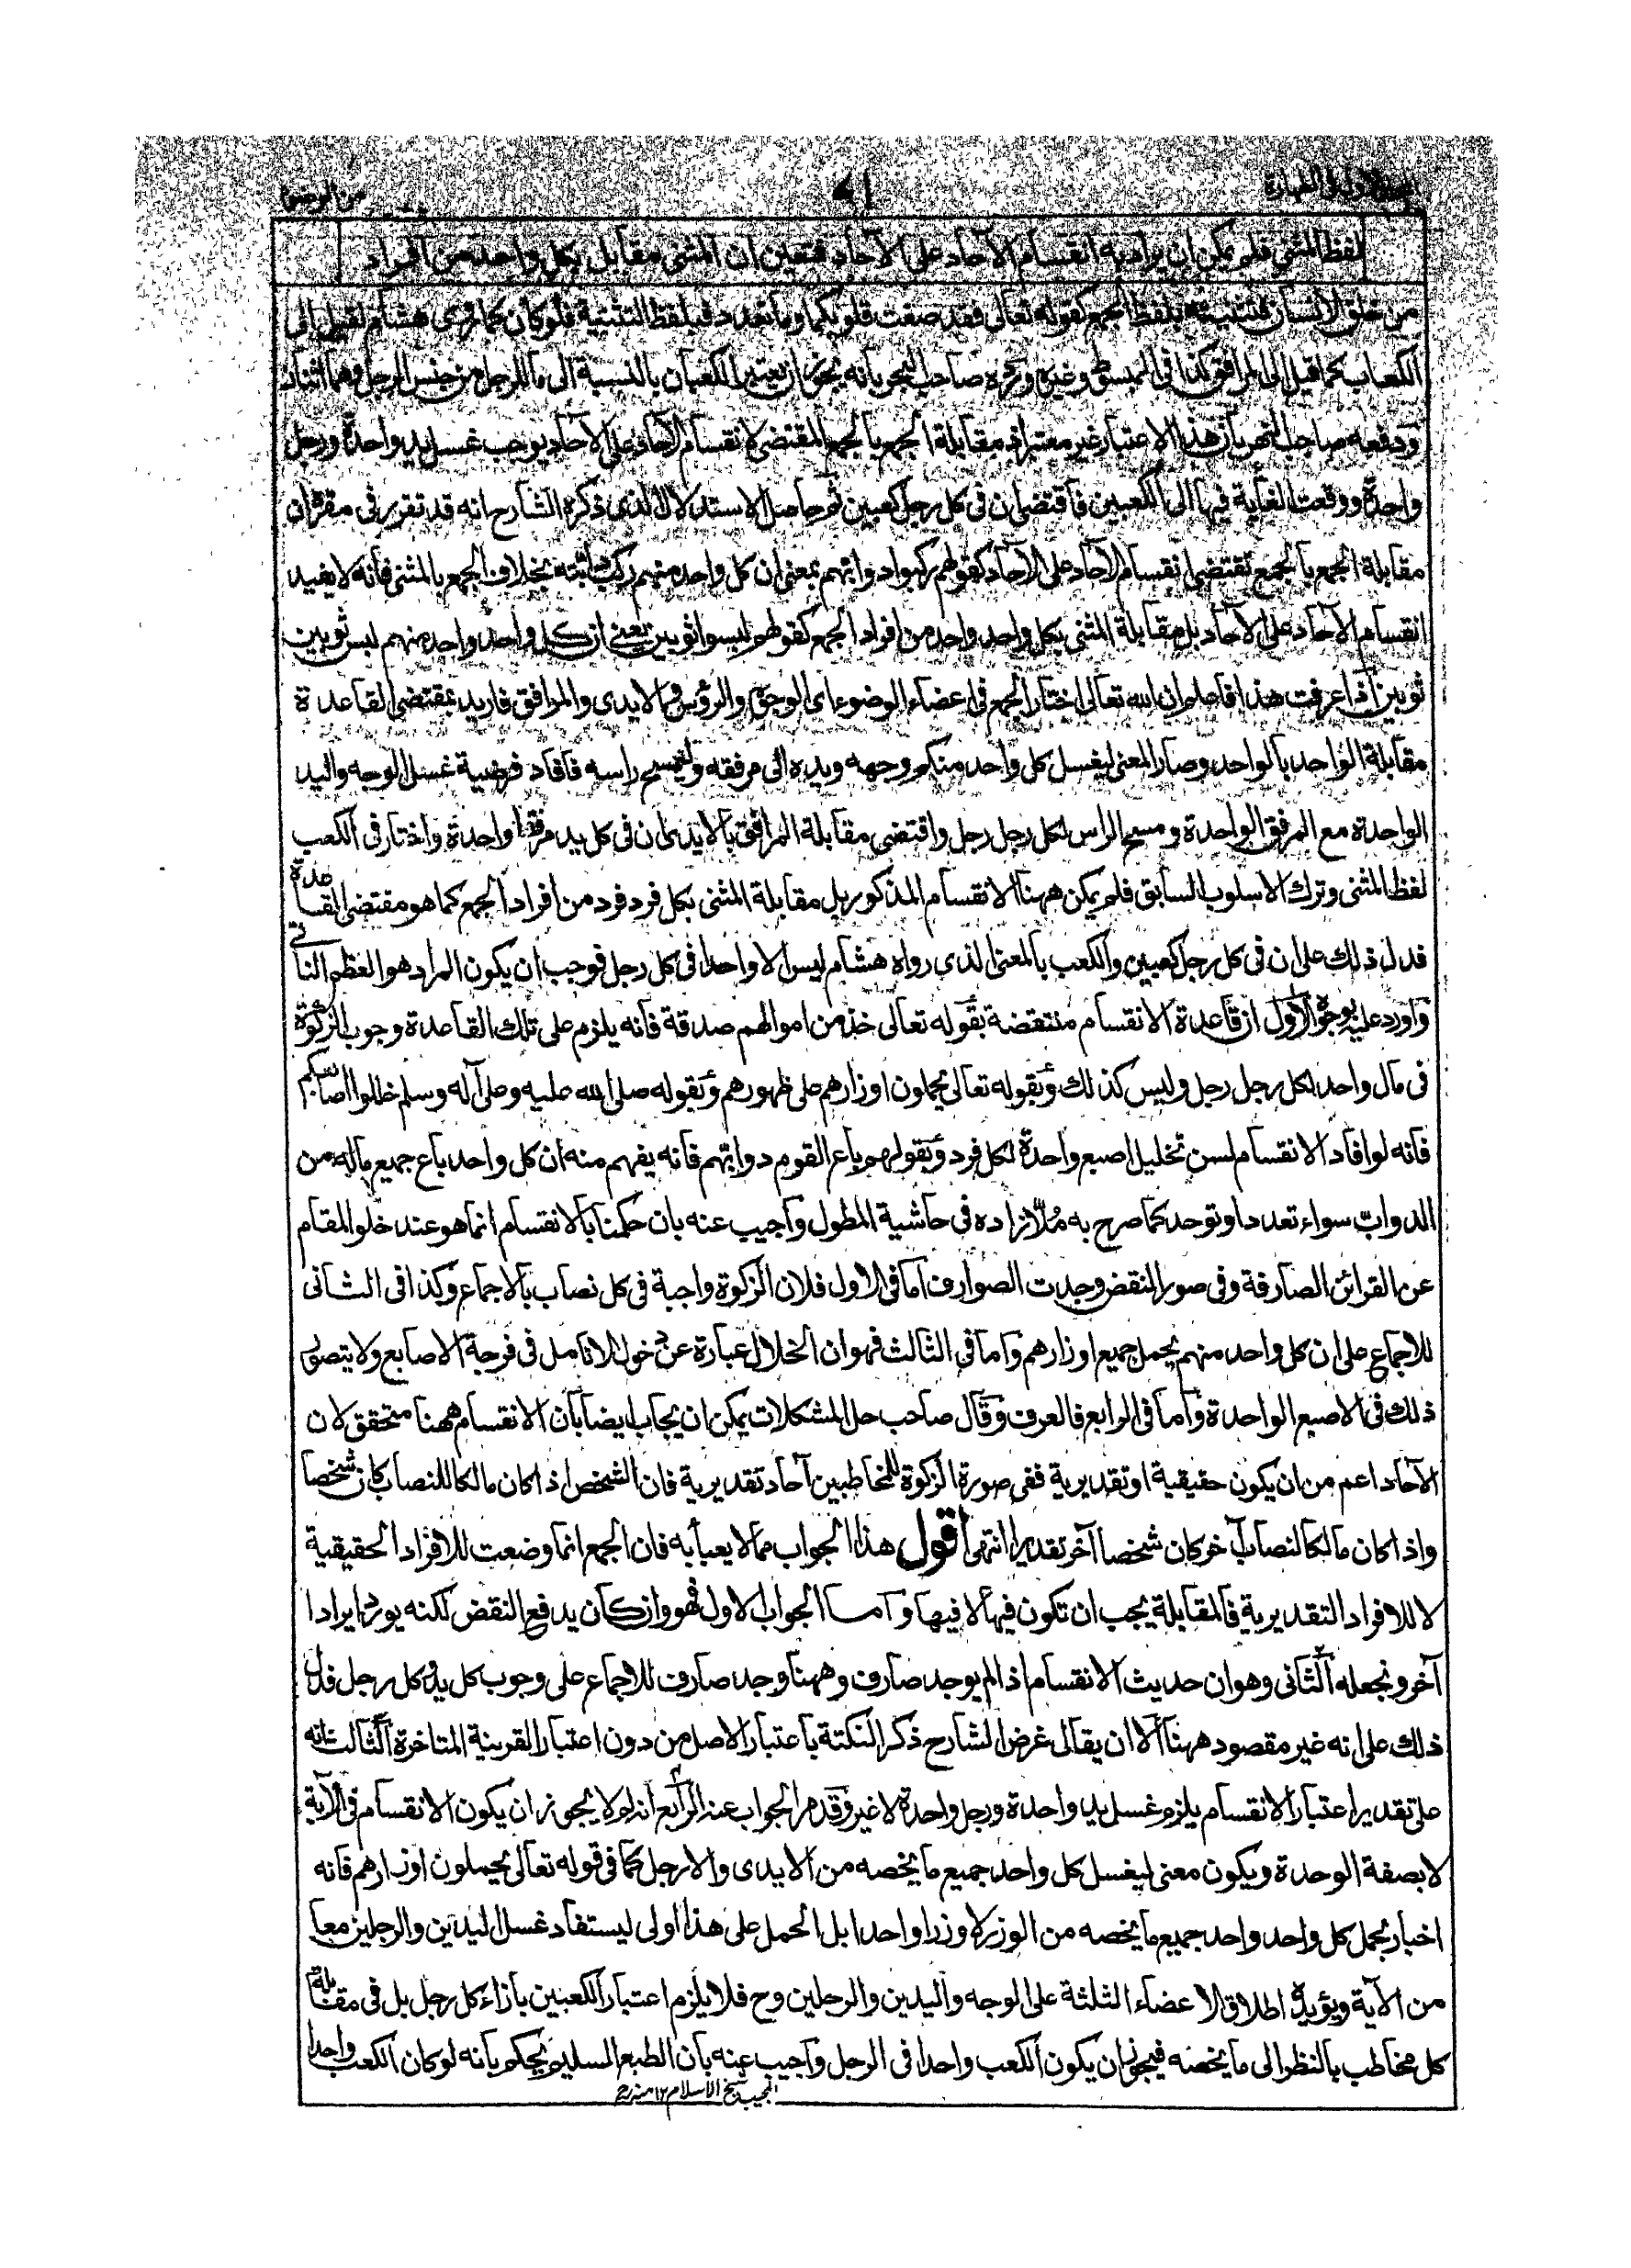 لفظ المثنى فلم يمكن ان يراد به انقسام الآحاد على الآحاد فتعين ان المثنى مقابل بكل واحد من افراد
من خلق الانسان فتثنيته بلفظ الجمع كقوله تعالى فقد صغت قلوبكما وما تعدد فبلفظ التثنية فلو كان كما روى هشام لقيل الى
الكعاب كما قيل الى المرافق كذا فى المبسوط وغيره ورده صاحب البحر بانه يجوز ان يعتبر الكعبان بالنسبة الى ما للرجل من جنس الرجل وهما اثنان
ودفعه صاحب النهر بان هذا الاعتبار غير معتبر اذ مقابلة الجمع بالجمع المقتضى لانقسام الآحاد على الآحاد يوجب غسل يد واحدة ورجل
واحدة ووقعت الغاية فيها الى الكعبين فاقتضى ان فى كل رجل كعبين ثم حاصل الاستدلال الذى ذكره الشارح انه قد تقرر فى مقره ان
مقابلة الجمع بالجمع تقتضى انقسام الآحاد على الآحاد كقولهم ركبوا دوابهم بمعنى ان كل واحد منهم ركب دابته بخلاف الجمع بالمثنى فانه لا يفيد
انقسام الآحاد على الآحاد بل مقابلة المثنى بكل واحد واحد من افراد الجمع كقولهم لبسوا ثوبين بمعنى ان كل واحد واحد منهم لبس ثوبين
ثوبين اذا عرفت هذا فاعلم ان الله تعالى اختار الجمع فى اعضاء الوضوء اى الوجوه والرؤس والايدى والمرافق فاريد بمقتضى القاعدة
مقابلة الواحد بالواحد وصار المعنى ليغسل كل واحد منكم وجهه ويده الى مرفقه وليمسح راسه فافاد فرضية غسل الوجه واليد
الواحدة مع المرفق الواحدة ومسح الراس لكل رجل رجل واقتضى مقابلة المرافق بالايدى ان فى كل يد مرفقا واحدة واختار فى الكعب
لفظ المثنى وترك الاسلوب السابق فلم يمكن ههنا الانقسام المذكور بل مقابلة المثنى بكل فرد فرد من افراد الجمع كما هو مقتضى القاعدة
فدل ذلك على ان فى كل رجل كعبين والكعب بالمعنى الذى رواه هشام ليس الا واحدا فى كل رجل فوجب ان يكون المراد هو العظم الناتى
واورد عليه بوجوه الاول ان قاعدة الانقسام منتقضة بقوله تعالى خذ من اموالهم صدقة فانه يلزم على تلك القاعدة وجوب الزكوة
فى مال واحد لكل رجل رجل وليس كذلك وبقوله تعالى يحملون اوزارهم على ظهورهم وبقوله صلى الله عليه وعلى آله وسلم خللوا اصابعكم
فانه لو افاد الانقسام لسن تخليل اصبع واحدة لكل فرد وبقولهم باع القوم دوابهم فانه يفهم منه ان كل واحد باع جميع ماله من
الدواب سواء تعدد او توحد كما صرح به ملا زاده فى حاشية المطول واجيب عنه بان حكمنا بالانقسام انما هو عند خلو المقام
عن القرائن الصارفة وفى صور النقض وجدت الصوارف اما فى الاول فلان الزكوة واجبة فى كل نصاب بالاجماع وكذا فى الثانى
للاجماع على ان كل واحد منهم يحمل جميع اوزارهم واما فى الثالث فهو ان الخلال عبارة عن دخول الانامل فى فرجة الاصابع ولا يتصور
ذلك فى الاصبع الواحدة واما فى الرابع فالعرف وقال صاحب حل المشكلات يمكن ان يجاب ايضا بان الانقسام ههنا متحقق لان
الآحاد اعم من ان يكون حقيقية او تقديرية ففى صورة الزكوة للمخاطبين آحاد تقديرية فان الشخص اذا كان مالكا للنصاب كان شخصا
واذا كان مالكا لنصاب آخر كان شخصا آخر تقديرا انتهى اقول هذا الجواب مما لا يعبأ به فان الجمع انما وضعت للافراد الحقيقية
لا للافراد التقديرية فالمقابلة يجب ان تكون فيها لا فيها واما الجواب الاول فهو وان كان يدفع النقض لكنه يورد ايرادا
آخر ونجعله الثانى وهو ان حديث الانقسام اذا لم يوجد صارف وههنا وجد صارف للاجماع على وجوب كل يد وكل رجل فدل
ذلك على انه غير مقصود ههنا الا ان يقال غرض الشارح ذكر النكتة باعتبار الاصل من دون اعتبار القرينة المتاخرة الثالث انه
على تقدير اعتبار الانقسام يلزم غسل يد واحدة ورجل واحدة لا غير وقد مر الجواب عنه الرابع انه لم لا يجوز ان يكون الانقسام فى الآية
لا بصفة الوحدة ويكون معنى ليغسل كل واحد جميع ما يخصه من الايدى والارجل كما فى قوله تعالى يحملون اوزارهم فانه
اخبار بحمل كل واحد واحد جميع ما يخصه من الوزر لا وزرا واحدا بل الحمل على هذا اولى ليستفاد غسل اليدين والرجلين معا
من الآية ويؤيده اطلاق الاعضاء الثلثة على الوجه واليدين والرجلين وح فلا يلزم اعتبار الكعبين بازاء كل رجل بل فى مقابلة
كل مخاطب بالنظر الى ما يخصه فيجوز ان يكون الكعب واحدا فى الرجل واجيب عنه بان الطبع السليم يحكم بانه لو كان الكعب واحدا
المجيب شيخ الاسلام ١٢ منه رح